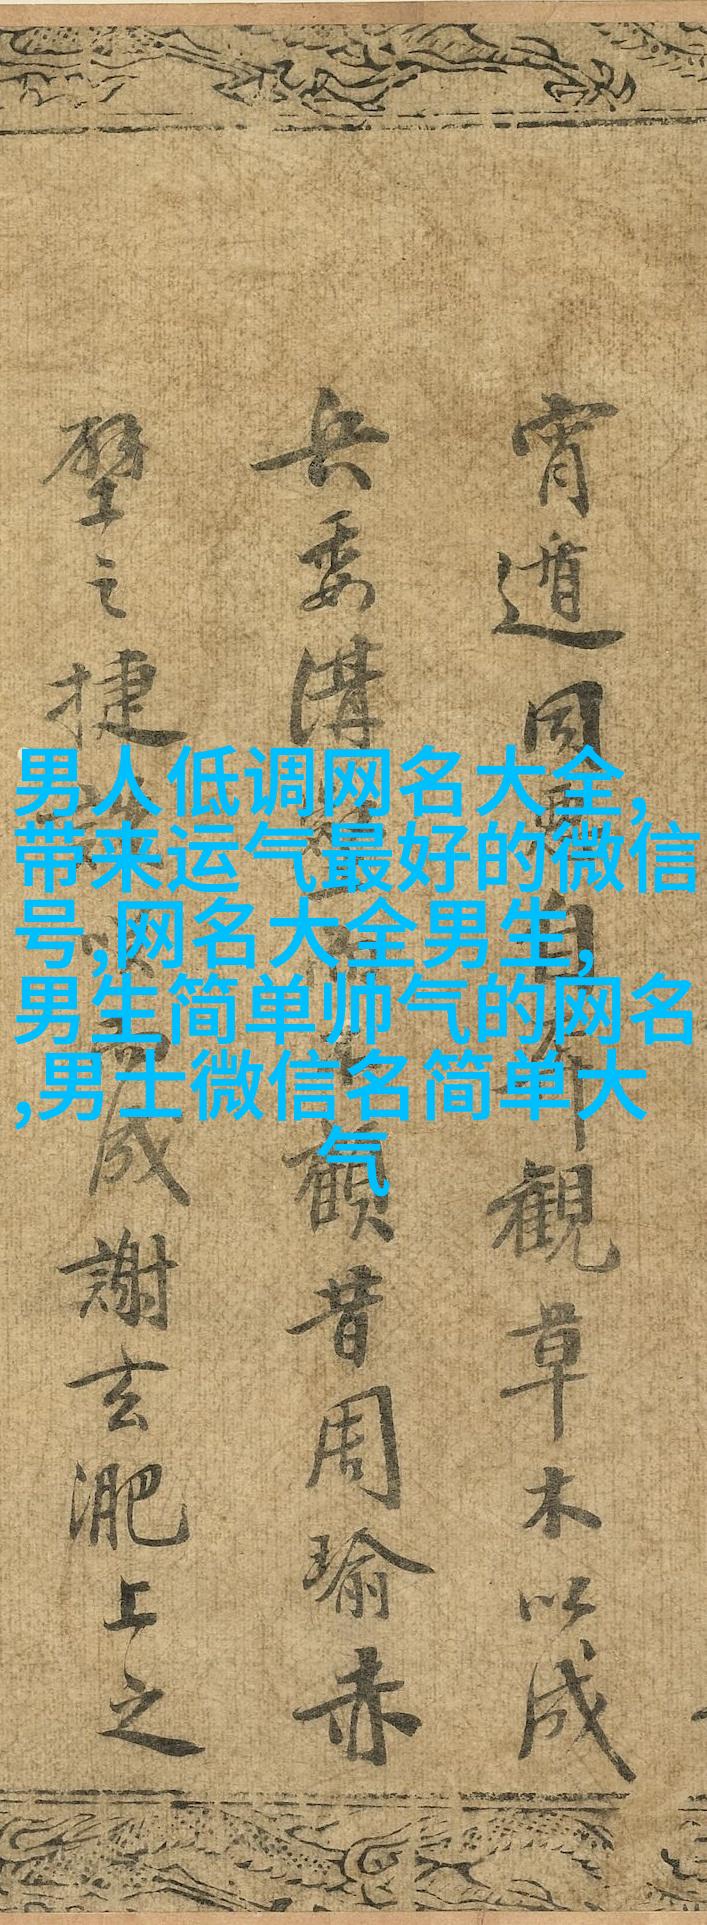 男人低调网名大全,
带来运气最好的微信
号,网名大全男生,
男生简单帅气的网名
,男士微信名简单大
气
宵遁自奔觀草木以成
兵委溝顧昔周瑜赤
壁之捷談咲而成謝玄淝上之